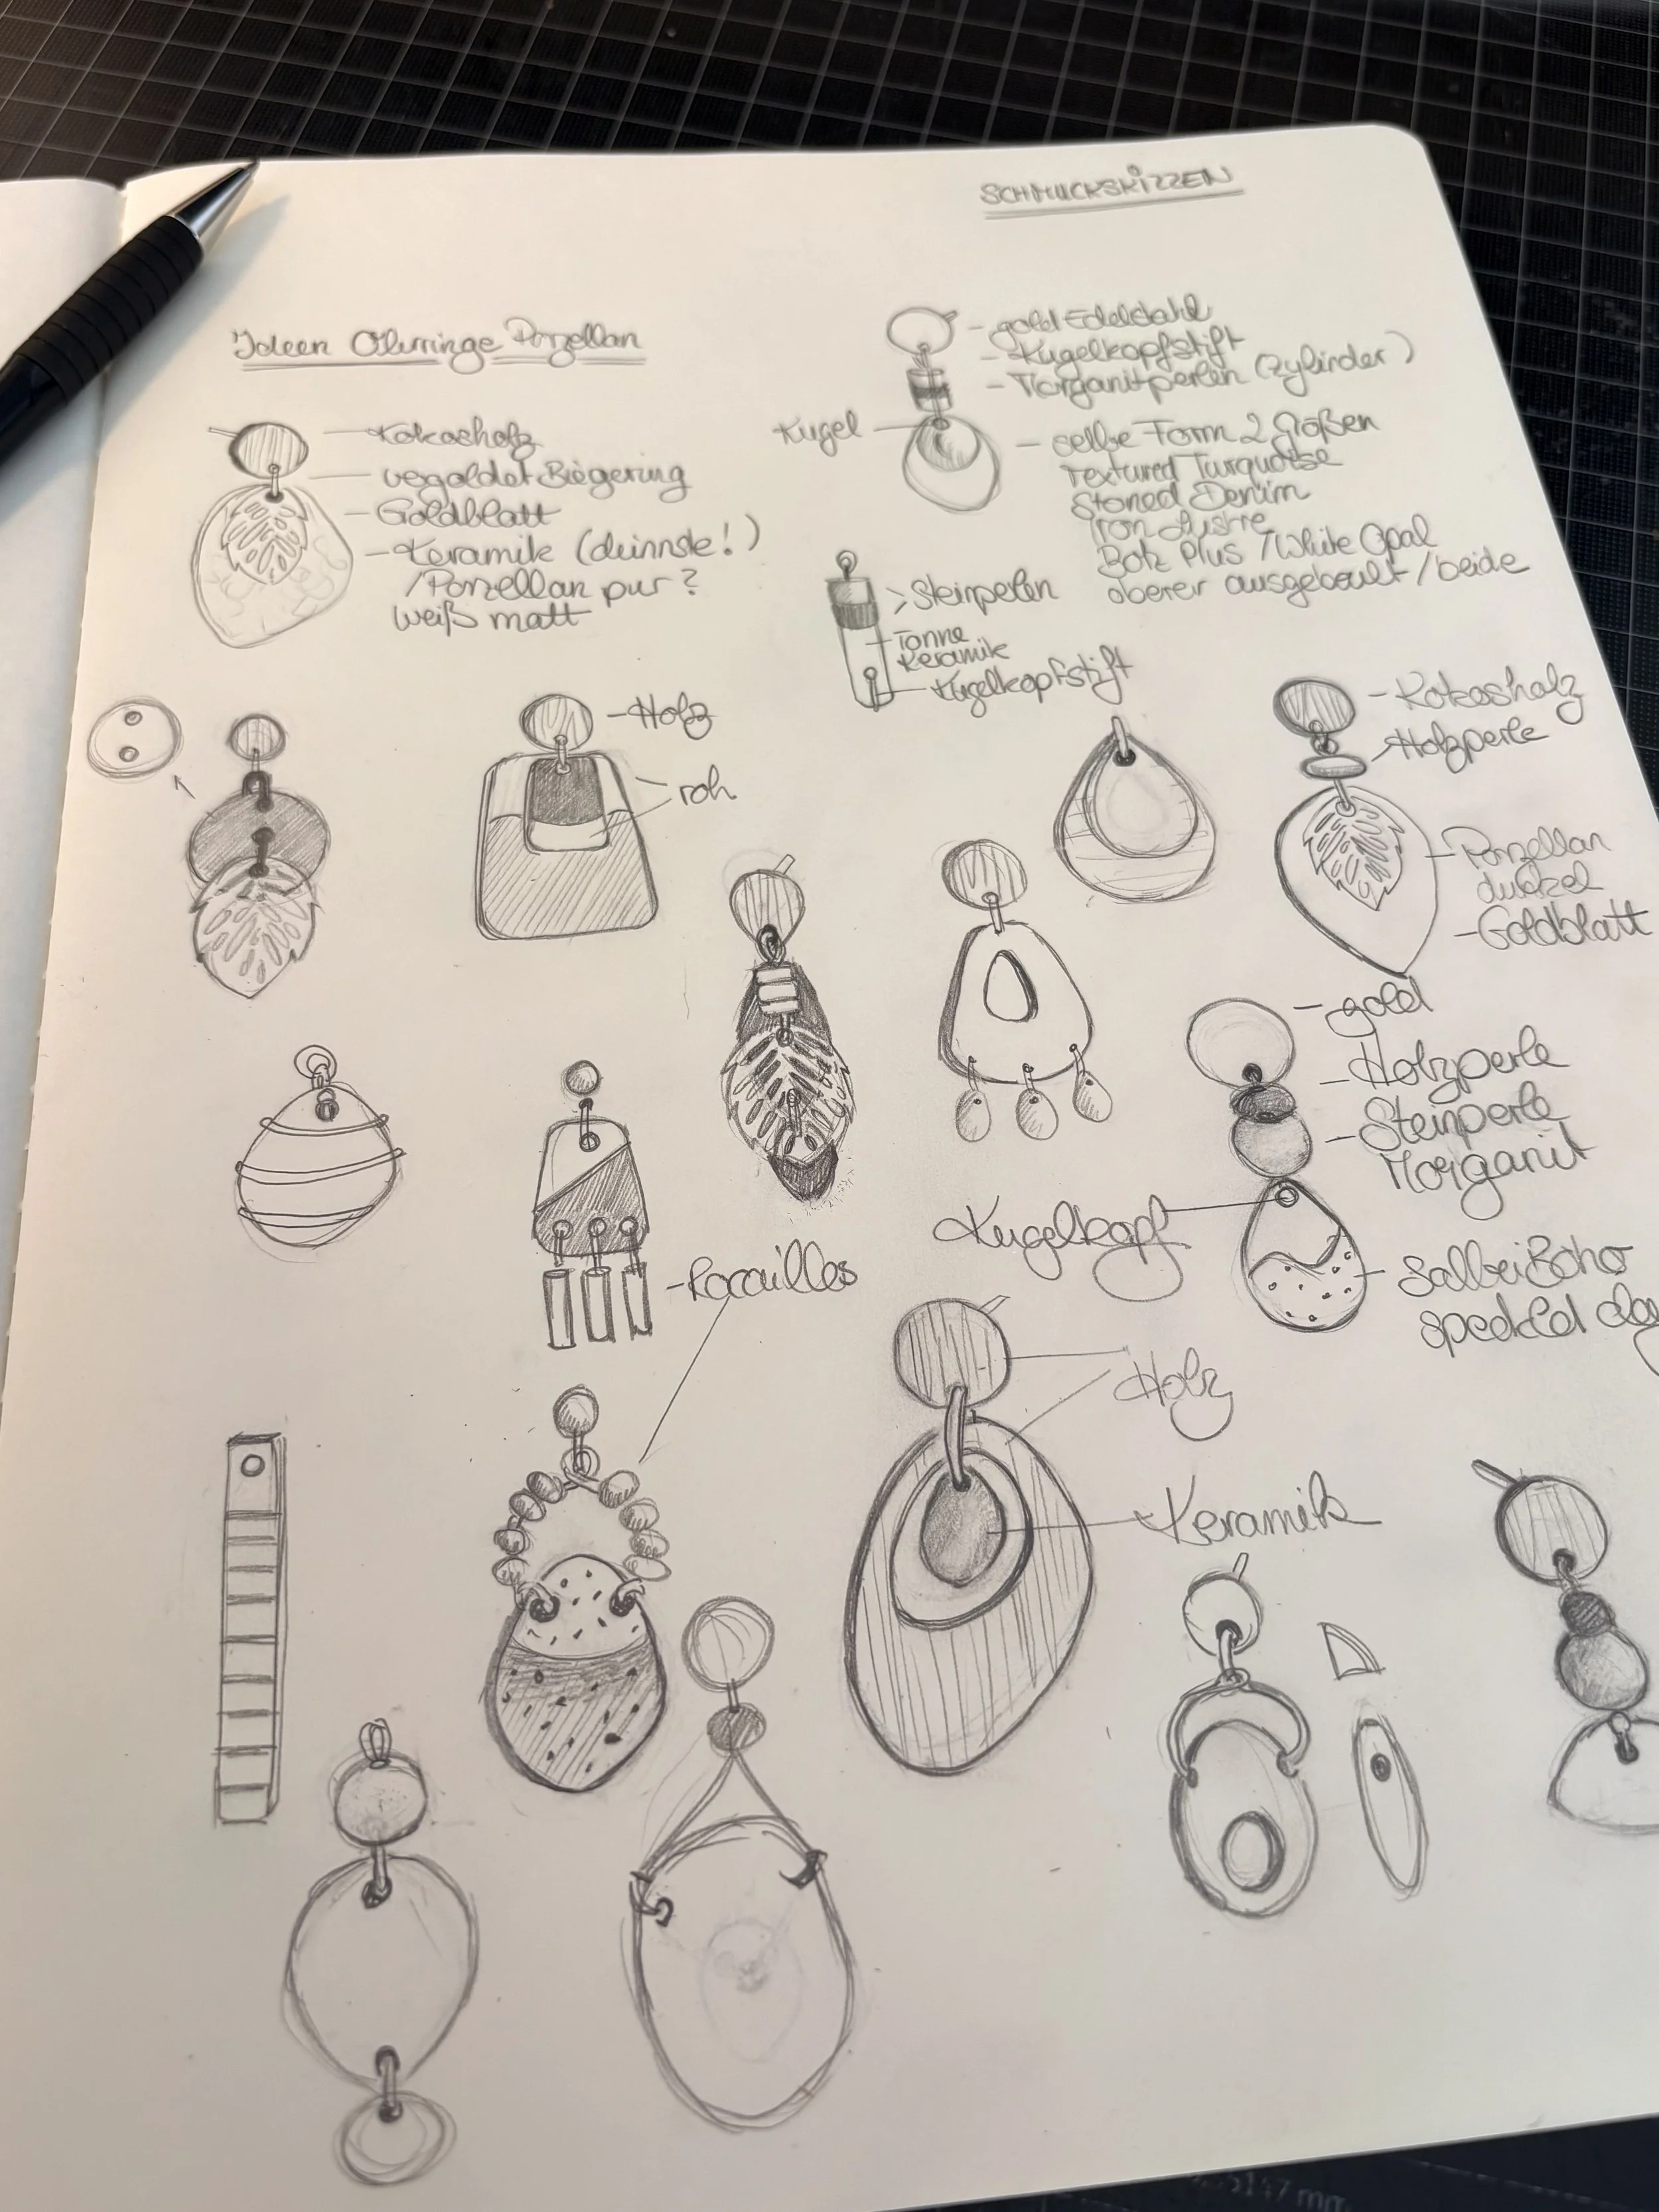 SCHMUCKSKIZZEN
Ideen Ohrringe Porzellan
- gold Edelstahl
- Kugelkopfstift
- Morganitperlen (Zylinder)
Kugel
- selbe Form 2 Größen
Textured Turquoise
Stoned Denim
Iron Lustre
Botz Plus / White Opal
oberer ausgebeult / beide
- Kokosholz
vergoldet Biegering
- Goldblatt
- Keramik (dünnste!)
/Porzellan pur?
weiß matt
> Steinperlen
- Tonne
Keramik
- Kugelkopfstift
- Holz
roh
- Kokosholz
Holzperle
- Porzellan
dunkel
- Goldblatt
- gold
- Holzperle
- Steinperle
Morganit
Kugelkopf
- Salbei Boho
speckled clay
- Rocailles
Holz
Keramik
5147 mm